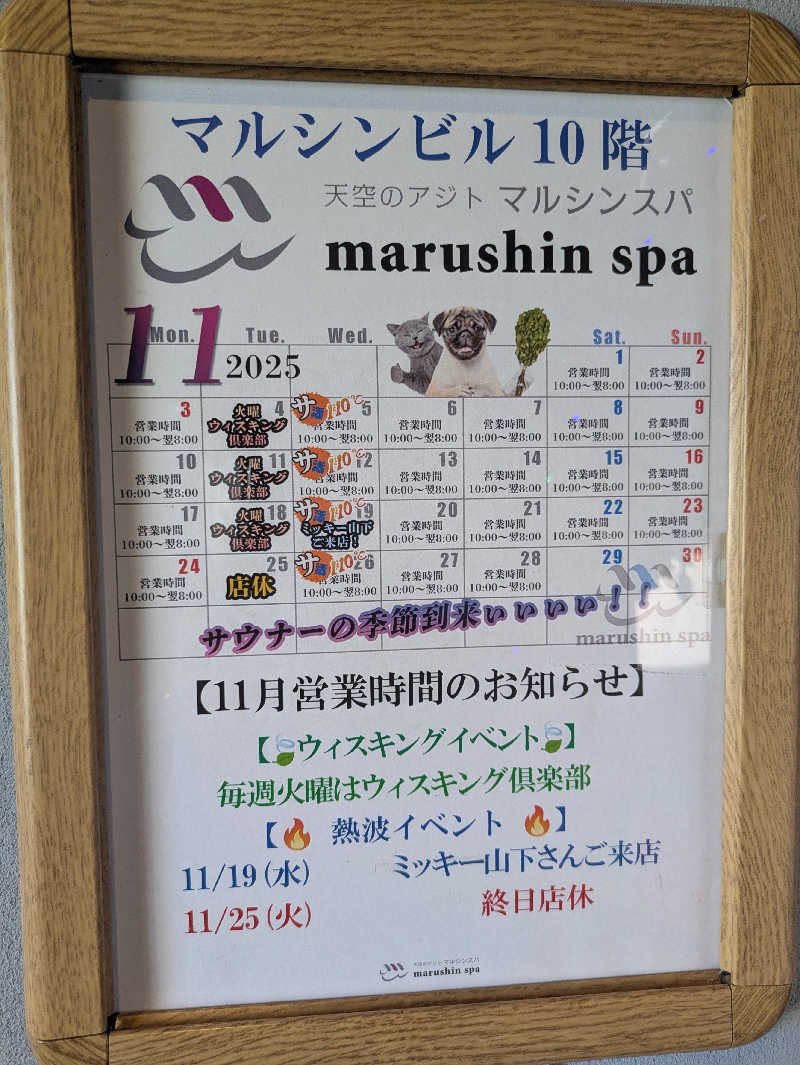 マルシンビル10階
天空のアジト マルシンスパ
marushin spa
11 2025
Mon. Tue. Wed. Sat. Sun.
1 2
営業時間 営業時間
10:00〜翌8:00 10:00〜翌8:00
3 4 5 6 7 8 9
営業時間 火曜 ウィスキング 倶楽部 サ道110℃ 営業時間 営業時間 営業時間 営業時間 営業時間
10:00〜翌8:00 10:00〜翌8:00 10:00〜翌8:00 10:00〜翌8:00 10:00〜翌8:00 10:00〜翌8:00
10 11 12 13 14 15 16
営業時間 火曜 ウィスキング 倶楽部 110℃ 営業時間 営業時間 営業時間 営業時間 営業時間
10:00〜翌8:00 10:00〜翌8:00 10:00〜翌8:00 10:00〜翌8:00 10:00〜翌8:00 10:00〜翌8:00
17 18 19 20 21 22 23
営業時間 火曜 ウィスキング 倶楽部 110℃ ミッキー山下 ご来店! 営業時間 営業時間 営業時間 営業時間
10:00〜翌8:00 10:00〜翌8:00 10:00〜翌8:00 10:00〜翌8:00 10:00〜翌8:00
24 25 26 27 28 29 30
営業時間 店休 110℃ 営業時間 営業時間 営業時間
10:00〜翌8:00 10:00〜翌8:00 10:00〜翌8:00 10:00〜翌8:00
marushin spa
サウナーの季節到来ぃぃぃぃ!!
【11月営業時間のお知らせ】
【ウィスキングイベント】
毎週火曜はウィスキング倶楽部
【熱波イベント】
11/19(水) ミッキー山下さんご来店
11/25(火) 終日店休
天空のアジト マルシンスパ
marushin spa